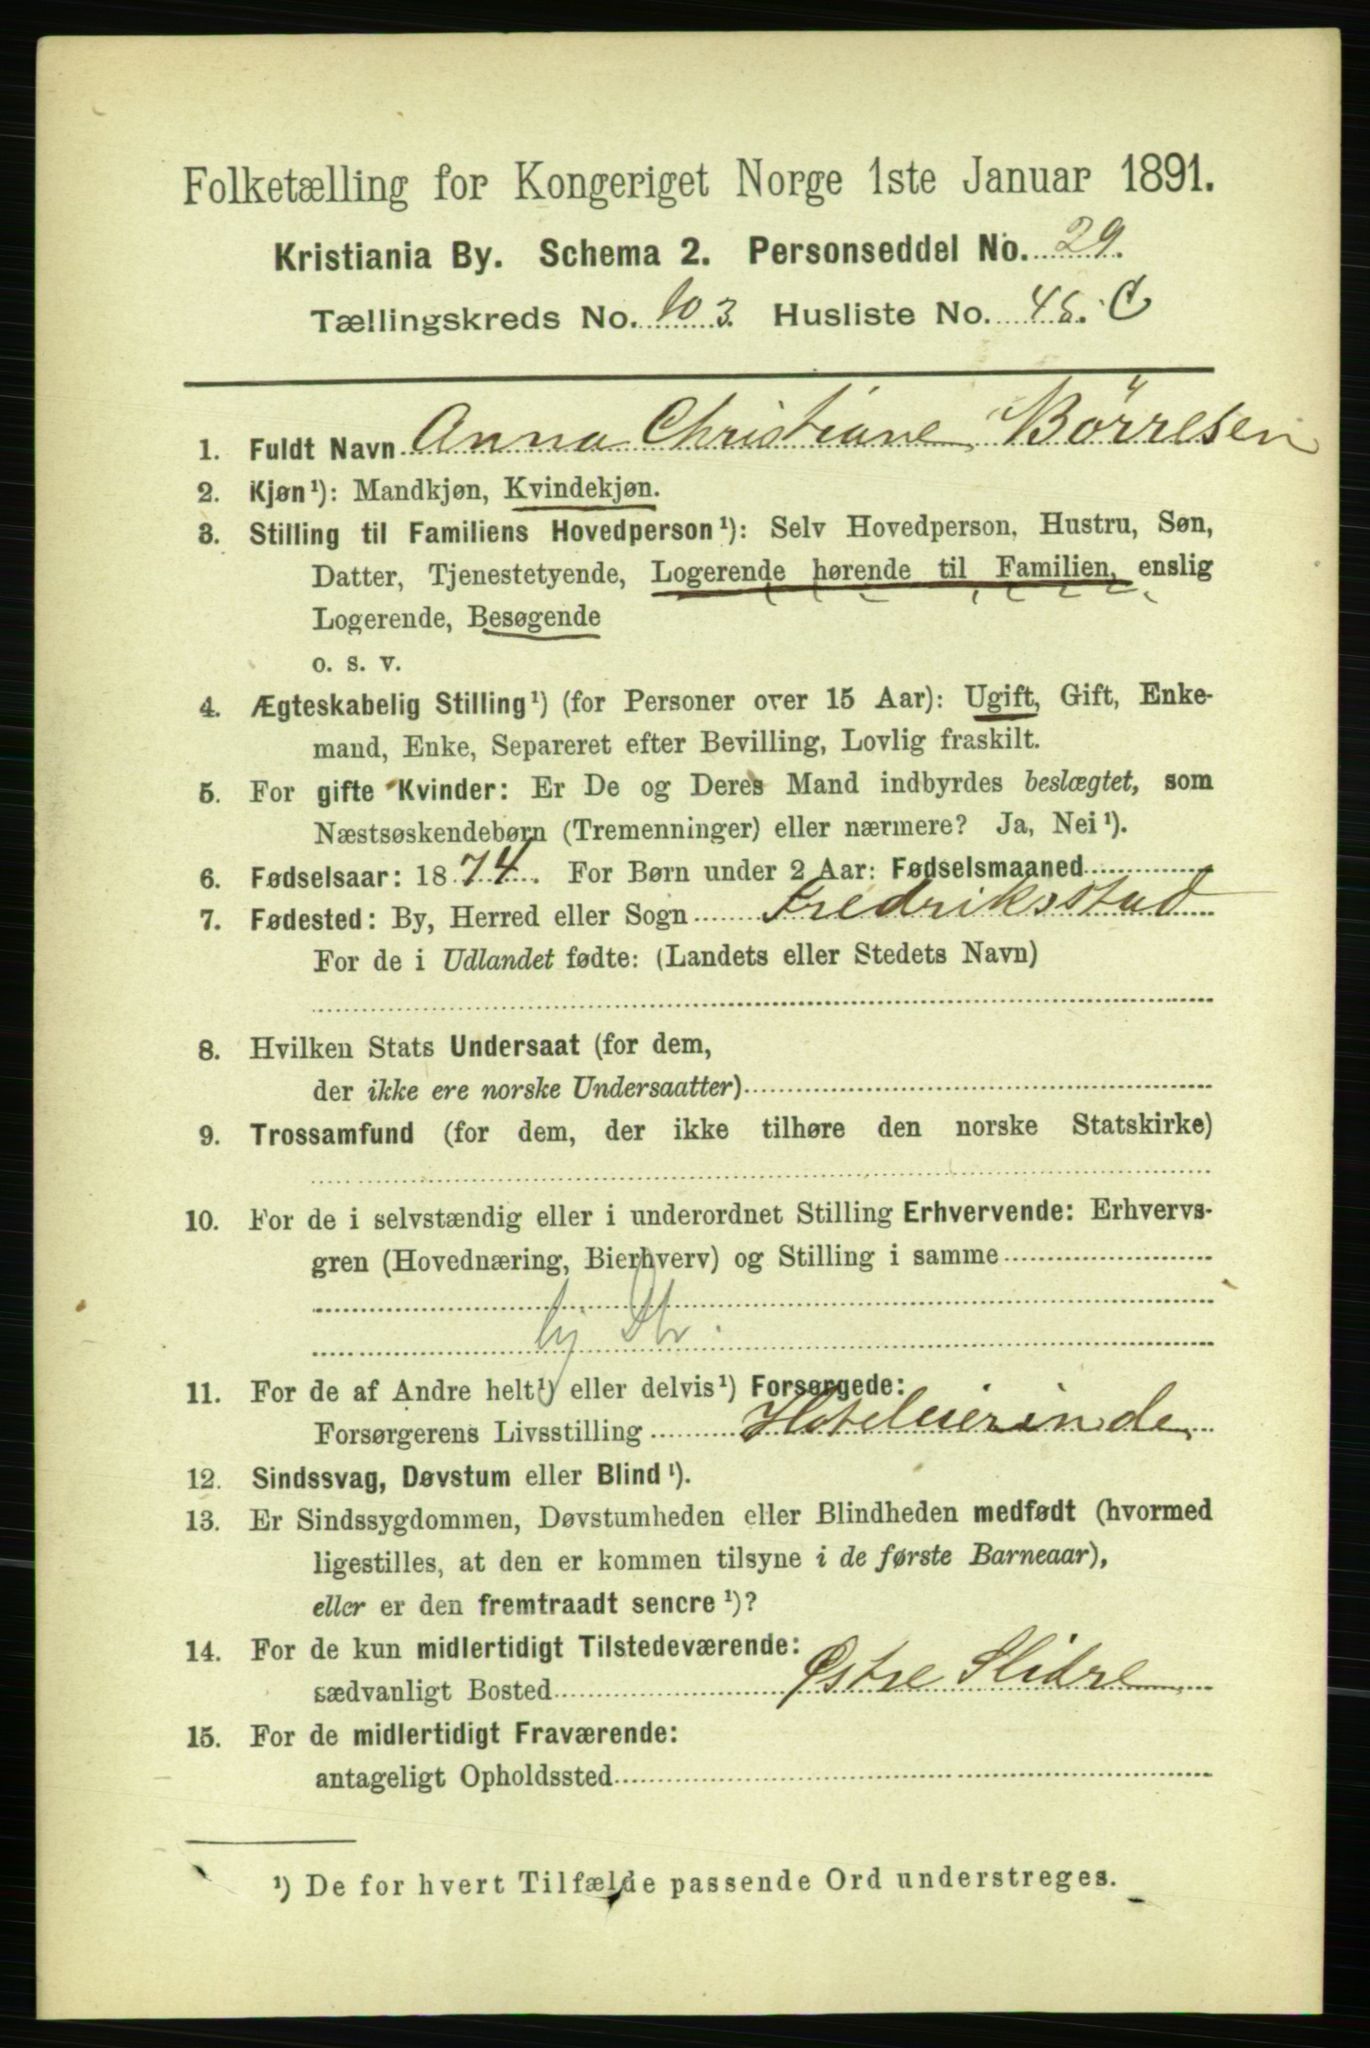 Folketælling for Kongeriget Norge 1ste Januar 1891.
Kristiania By. Schema 2. Personseddel No. 29.
Tællingskreds No. 103. Husliste No. 48. C
1. Fuldt Navn Anna Christiane Börresen
2. Kjøn¹): Mandkjøn, Kvindekjøn.
3. Stilling til Familiens Hovedperson¹): Selv Hovedperson, Hustru, Søn,
Datter, Tjenestetyende, Logerende hørende til Familien, enslig
Logerende, Besøgende
o. s. v.
4. Ægteskabelig Stilling¹) (for Personer over 15 Aar): Ugift, Gift, Enke-
mand, Enke, Separeret efter Bevilling, Lovlig fraskilt.
5. For gifte Kvinder: Er De og Deres Mand indbyrdes beslægtet, som
Næstsøskendebørn (Tremenninger) eller nærmere? Ja, Nei¹).
6. Fødselsaar: 1874. For Børn under 2 Aar: Fødselsmaaned
7. Fødested: By, Herred eller Sogn Fredriksstad
For de i Udlandet fødte: (Landets eller Stedets Navn)
8. Hvilken Stats Undersaat (for dem,
der ikke ere norske Undersaatter)
9. Trossamfund (for dem, der ikke tilhøre den norske Statskirke)
10. For de i selvstændig eller i underordnet Stilling Erhvervende: Erhvervs-
gren (Hovednæring, Bierhverv) og Stilling i samme
11. For de af Andre helt¹) eller delvis¹) Forsørgede:
Forsørgerens Livsstilling Hoteleierinde
12. Sindssvag, Døvstum eller Blind¹).
13. Er Sindssygdommen, Døvstumheden eller Blindheden medfødt (hvormed
ligestilles, at den er kommen tilsyne i de første Barneaar),
eller er den fremtraadt senere¹)?
14. For de kun midlertidigt Tilstedeværende:
sædvanligt Bosted Østre Slidre
15. For de midlertidigt Fraværende:
antageligt Opholdssted
¹) De for hvert Tilfælde passende Ord understreges.